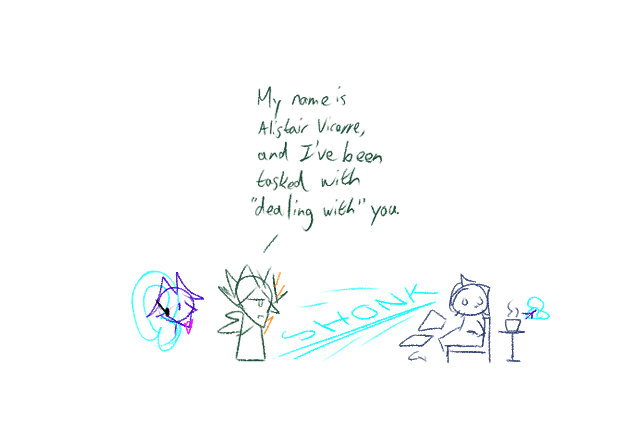 My name is
Alistair Vicorre,
and I've been
tasked with
"dealing with" you.
SHONK